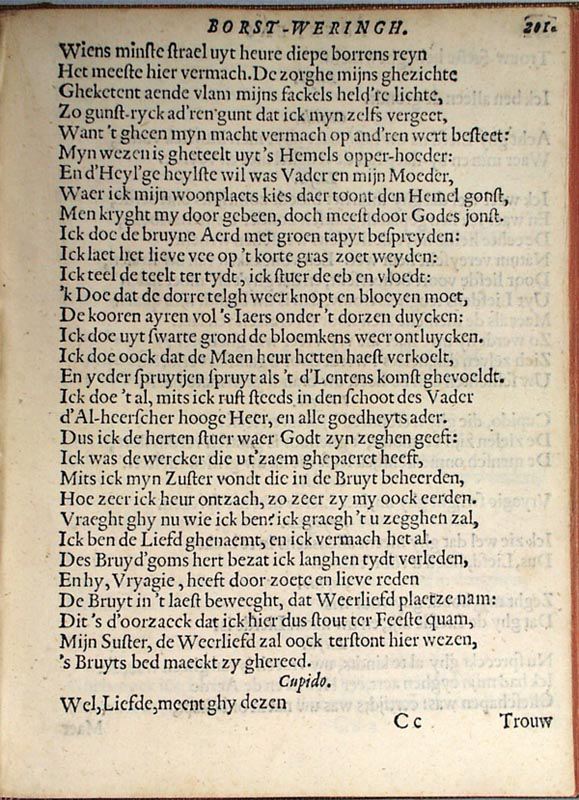 BORST-WERINGH. 201.
Wiens minste strael uyt heure diepe borrens reyn
Het meeste hier vermach. De zorghe mijns ghezichts
Gheketent aende vlam mijns fackels held're lichte,
Zo gunst-ryck ad'ren gunt dat ick myn zelfs vergeet,
Want 't gheen myn macht vermach op and'ren wert besteet:
Myn wezen is gheteelt uyt 's Hemels opper-hoeder:
En d'Heyl'ge heylste wil was Vader en mijn Moeder,
Waer ick mijn woonplaets kies daer toont den Hemel gonst,
Men kryght my door gebeen, doch meest door Godes jonst.
Ick doe de bruyne Aerd met groen tapyt bespreyden:
Ick laet het lieve vee op 't korte gras zoet weyden:
Ick teel de teelt ter tydt, ick stuer de eb en vloedt:
'k Doe dat de dorre telgh weer knopt en bloeyen moet,
De kooren ayren vol 's Iaers onder 't dorzen duycken:
Ick doe uyt swarte grond de bloemkens weer ontluycken.
Ick doe oock dat de Maen heur hetten haest verkoelt,
En yeder spruytjen spruyt als 't d'Lentens komst ghevoeldt.
Ick doe 't al, mits ick rust steeds in den schoot des Vader
d'Al-heerscher hooge Heer, en alle goedheyts ader.
Dus ick de herten stuer waer Godt zyn zeghen geeft:
Ick was de wercker die u t'zaem ghepaeret heeft,
Mits ick myn Zuster vondt die in de Bruyt beheerden,
Hoe zeer ick heur ontzach, zo zeer zy my oock eerden.
Vraeght ghy nu wie ick ben? ick graegh 't u zegghen zal,
Ick ben de Liefd ghenaemt, en ick vermach het al.
Des Bruyd'goms hert bezat ick langhen tydt verleden,
En hy, Vryagie, heeft door zoete en lieve reden
De Bruyt in 't laest beweeght, dat Weerliefd plaetze nam:
Dit 's d'oorzaeck dat ick hier dus stout ter Feeste quam,
Mijn Suster, de Weerliefd zal oock terstont hier wezen,
's Bruyts bed maeckt zy ghereed.
Cupido.
Wel, Liefde, meent ghy dezen
C c Trouw